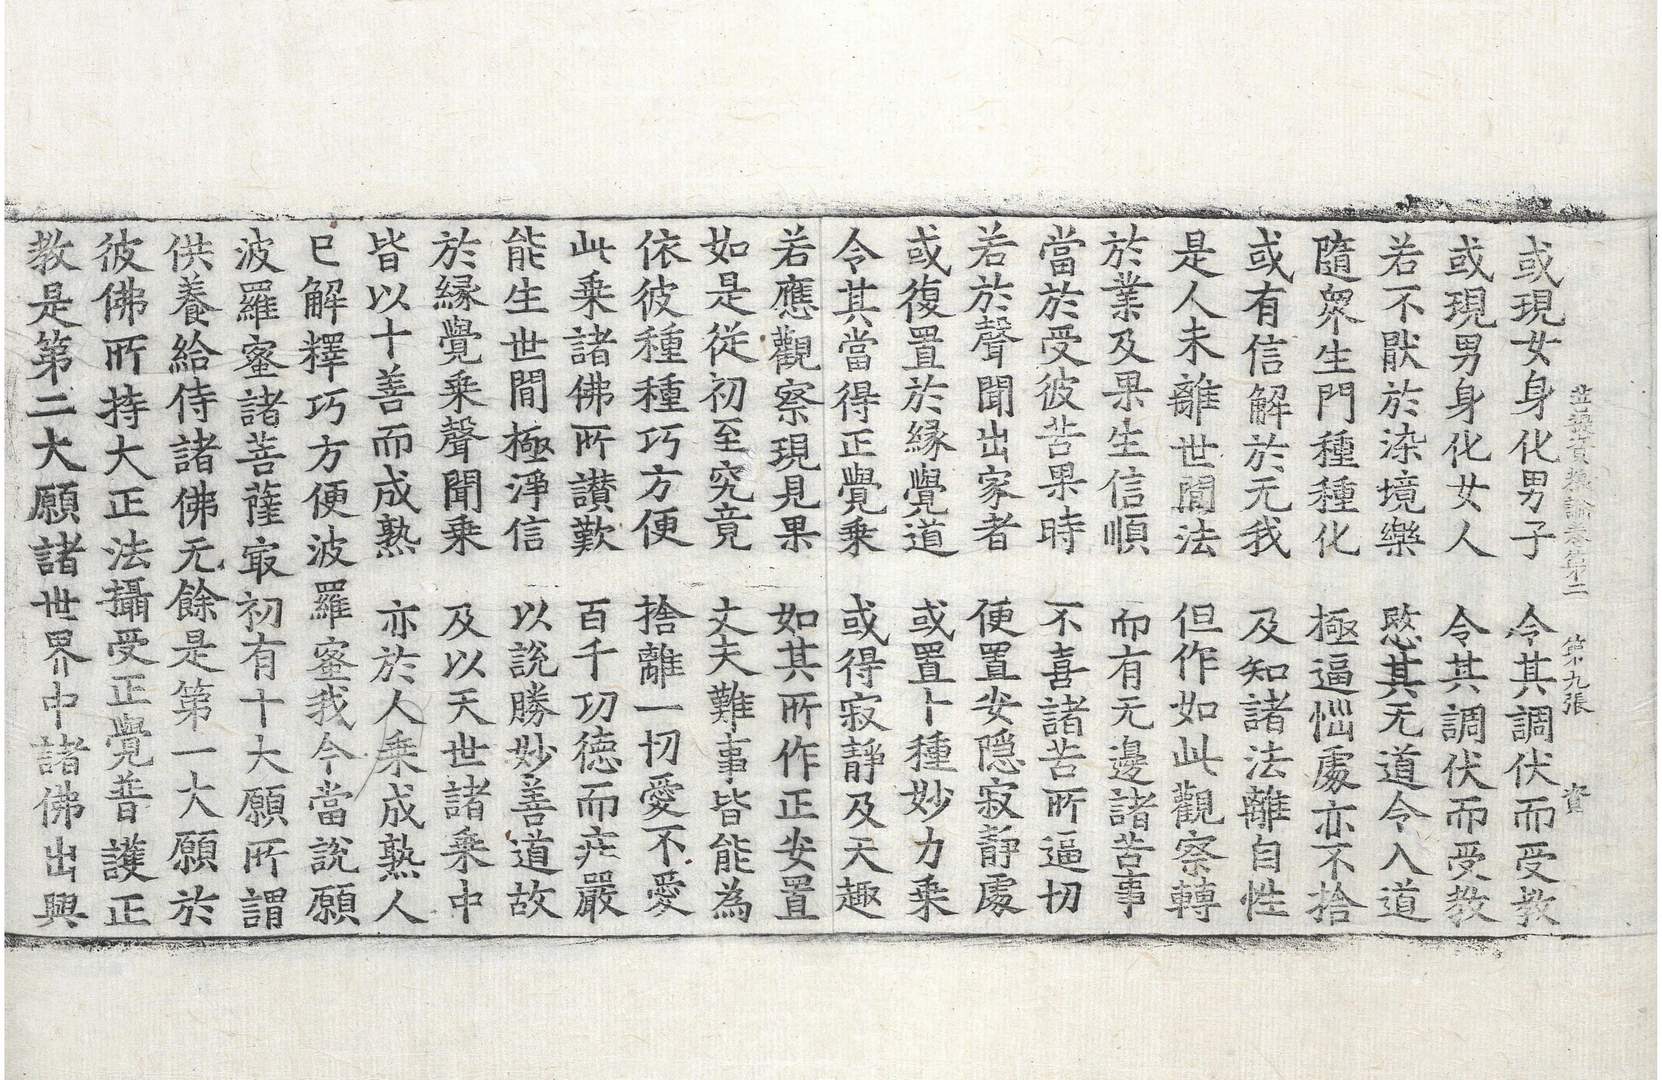 菩提資糧論卷第二 第九張 資
或現女身化男子 令其調伏而受教
或現男身化女人 令其調伏而受教
若不猒於染境樂 愍其无道令入道
隨衆生門種種化 極逼惱處亦不捨
或有信解於无我 及知諸法離自性
是人未離世間法 但作如此觀察轉
於業及果生信順 而有无邊諸苦事
當於受彼苦果時 不喜諸苦所逼切
若於聲聞出家者 便置安隱寂靜處
或復置於緣覺道 或置十種妙力乘
令其當得正覺乘 或得寂靜及天趣
若應觀察現見果 如其所作正安置
如是從初至究竟 丈夫難事皆能為
依彼種種巧方便 捨離一切愛不愛
此乘諸佛所讃歎 百千功德而庄嚴
能生世間極淨信 以說勝妙善道故
於緣覺乘聲聞乘 及以天世諸乘中
皆以十善而成熟 亦於人乘成熟人
已解釋巧方便波羅蜜我今當說願
波羅蜜諸菩薩㝡初有十大願所謂
供養給侍諸佛无餘是第一大願於
彼佛所持大正法攝受正覺普護正
教是第二大願諸世界中諸佛出興